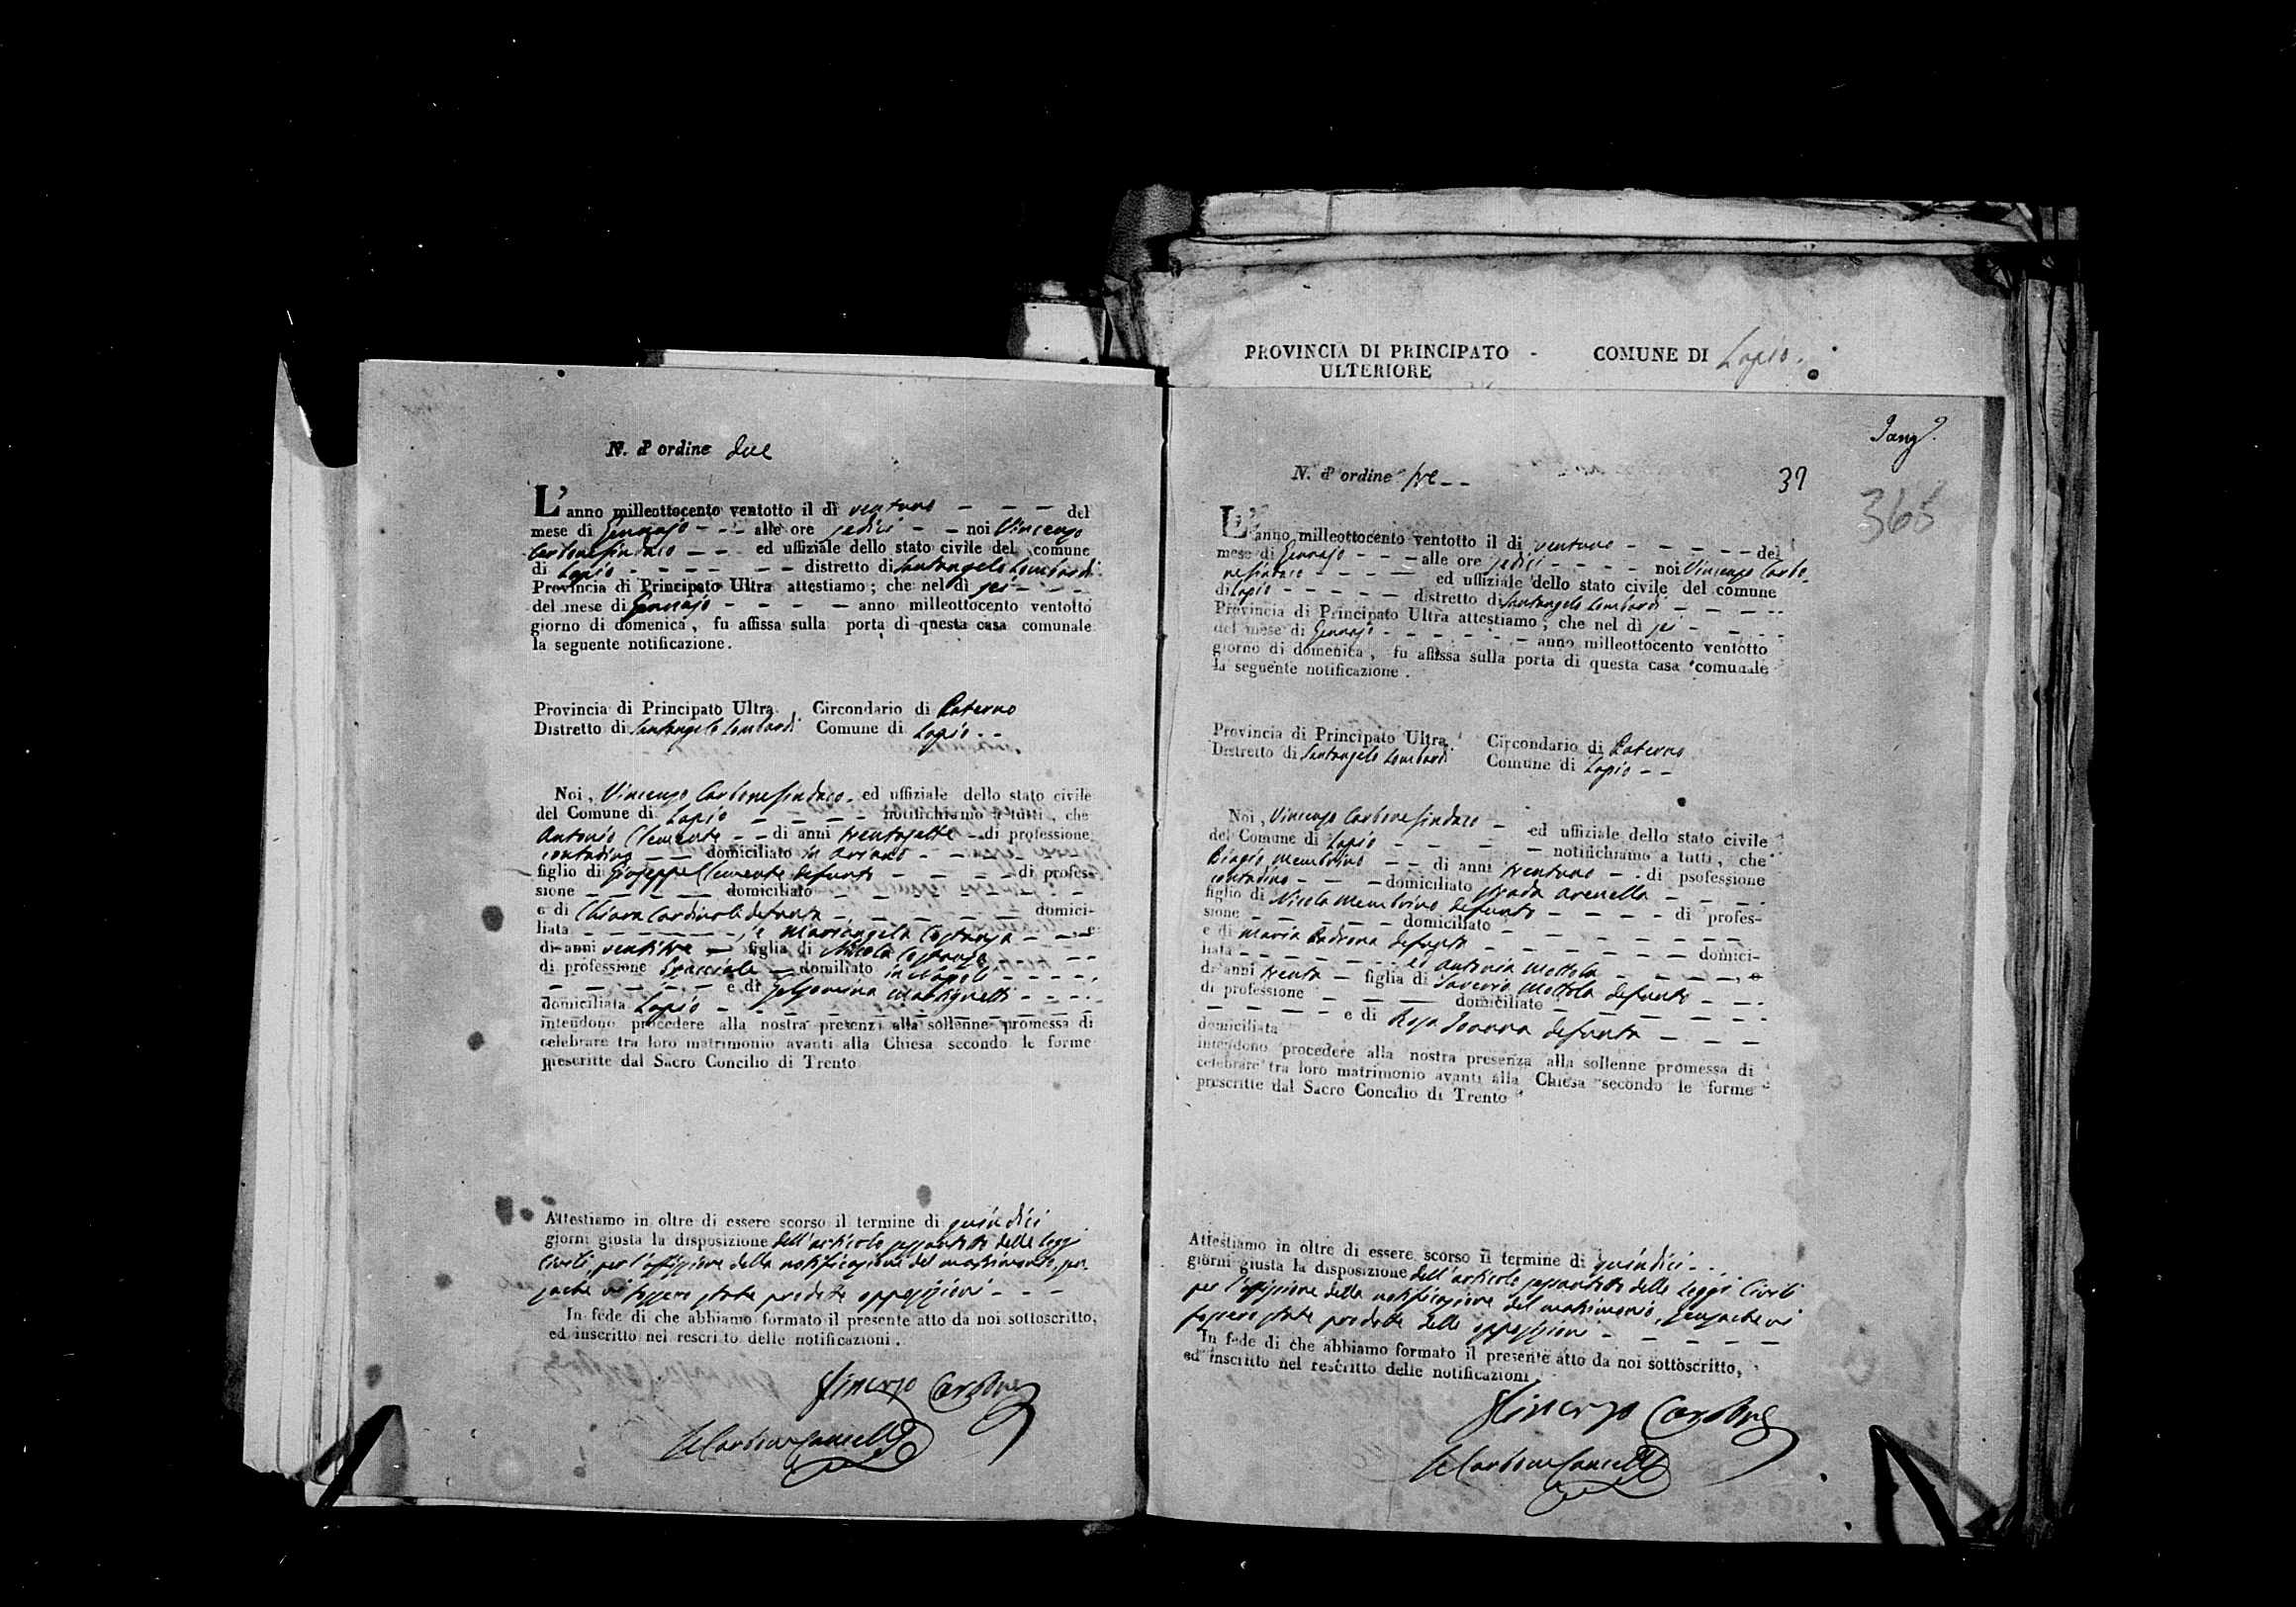 N. d'ordine due
L'anno milleottocento ventotto il dì ventuno - - - del
mese di Gennajo - - - alle ore sedici - - noi Vincenzo
Carbone Sindaco - - ed uffiziale dello stato civile del comune
di Lapio - - - - - - distretto di Santangelo Lombardi
Provincia di Principato Ultra attestiamo; che nel dì sei - - -
del mese di Gennajo - - - - anno milleottocento ventotto
giorno di domenica, fu affissa sulla porta di questa casa comunale
la seguente notificazione.
Provincia di Principato Ultra. Circondario di Paterno
Distretto di Santangelo Lombardi Comune di Lapio - -
Noi, Vincenzo Carbone Sindaco - ed uffiziale dello stato civile
del Comune di Lapio - - - - notifichiamo a tutti, che
Antonio Clemente - - di anni trentasette - di professione
contadino - - domiciliato in Ariano - - - -
figlio di Giuseppe Clemente defunto - - - - di profes-
sione - - - - domiciliato - - - - - -
e di Chiara defunta - - - - - - domici-
liata - - - - - - -, e Mariangela Costanza - - - e
di anni ventitre - figlia di Nicola - -
di professione - domiliato in Napoli - - - -
- - - - - e di Gelsomina - - - -
domiciliata Lapio - - - - - - - - - -
intendono procedere alla nostra presenza alla sollenne promessa di
celebrare tra loro matrimonio avanti alla Chiesa secondo le forme
prescritte dal Sacro Concilio di Trento
Attestiamo in oltre di essere scorso il termine di quindici
giorni giusta la disposizione dell'articolo sessantotto delle leggi
Civili, per l'affissione della notificazione del matrimonio, sen
zache vi fossero state prodotte opposizioni - - -
In fede di che abbiamo formato il presente atto da noi sottoscritto,
ed inscritto nel rescritto delle notificazioni.
Vincenzo Carbone
Carbone Cancell
PROVINCIA DI PRINCIPATO - COMUNE DI Lapio.
ULTERIORE
N. d'ordine tre - -
39
365
L'anno milleottocento ventotto il dì ventuno - - - - - del
mese di Gennajo - - - alle ore sedici - - - - noi Vincenzo Carbo
ne Sindaco - - - - ed uffiziale dello stato civile del comune
di Lapio - - - - - distretto di Santangelo Lombardi - - - -
Provincia di Principato Ultra attestiamo; che nel dì sei - - - -
del mese di Gennajo - - - - - - anno milleottocento ventotto
giorno di domenica, fu affissa sulla porta di questa casa comunale
la seguente notificazione.
Provincia di Principato Ultra. Circondario di Paterno
Distretto di Santangelo Lombardi Comune di Lapio - -
Noi, Vincenzo Carbone Sindaco - ed uffiziale dello stato civile
del Comune di Lapio - - - - notifichiamo a tutti, che
Biagio Membrino - - di anni trentuno - - di psofessione
contadino - - - domiciliato strada Arenella - - - -
figlio di Nicola Membrino defunto - - - - di profes-
sione - - - - - domiciliato - - - - - - -
e di Maria defunta - - - - - - domici-
liata - - - - - - - ed Antonia Mottola - - - -, e
di anni trenta - figlia di Saverio Mottola defunto - - -
di professione - - - - domiciliato - - - - - -
- - - - e di Rosa defunta - - -
domiciliata
intendono procedere alla nostra presenza alla sollenne promessa di
celebrare tra loro matrimonio avanti alla Chiesa secondo le forme
prescritte dal Sacro Concilio di Trento
Attestiamo in oltre di essere scorso il termine di quindici - - -
giorni giusta la disposizione dell'articolo sessantotto delle Leggi Civili
per l'affissione della notificazione del matrimonio, senzache vi
fossero state prodotte delle opposizioni - - - - - -
In fede di che abbiamo formato il presente atto da noi sottoscritto,
ed inscritto nel rescritto delle notificazioni.
Vincenzo Carbone
Carbone Cancell